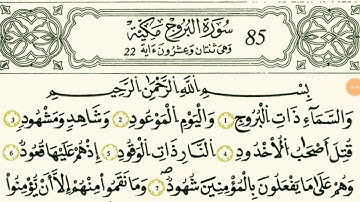 سُورَةُ الْبُرُوجِ مَكِّيَّةٌ
85
وَهِيَ ثِنْتَانِ وَعِشْرُونَ ءَايَةً 22
بِسْمِ اللَّهِ الرَّحْمَٰنِ الرَّحِيمِ
وَالسَّمَآءِ ذَاتِ الْبُرُوجِ 1 وَالْيَوْمِ الْمَوْعُودِ 2 وَشَاهِدٍ وَمَشْهُودٍ 3
قُتِلَ أَصْحَابُ الْأُخْدُودِ 4 النَّارِ ذَاتِ الْوَقُودِ 5 إِذْ هُمْ عَلَيْهَا قُعُودٌ 6
وَهُمْ عَلَىٰ مَا يَفْعَلُونَ بِالْمُؤْمِنِينَ شُهُودٌ 7 وَمَا نَقَمُوا مِنْهُمْ إِلَّا أَنْ يُؤْمِنُوا